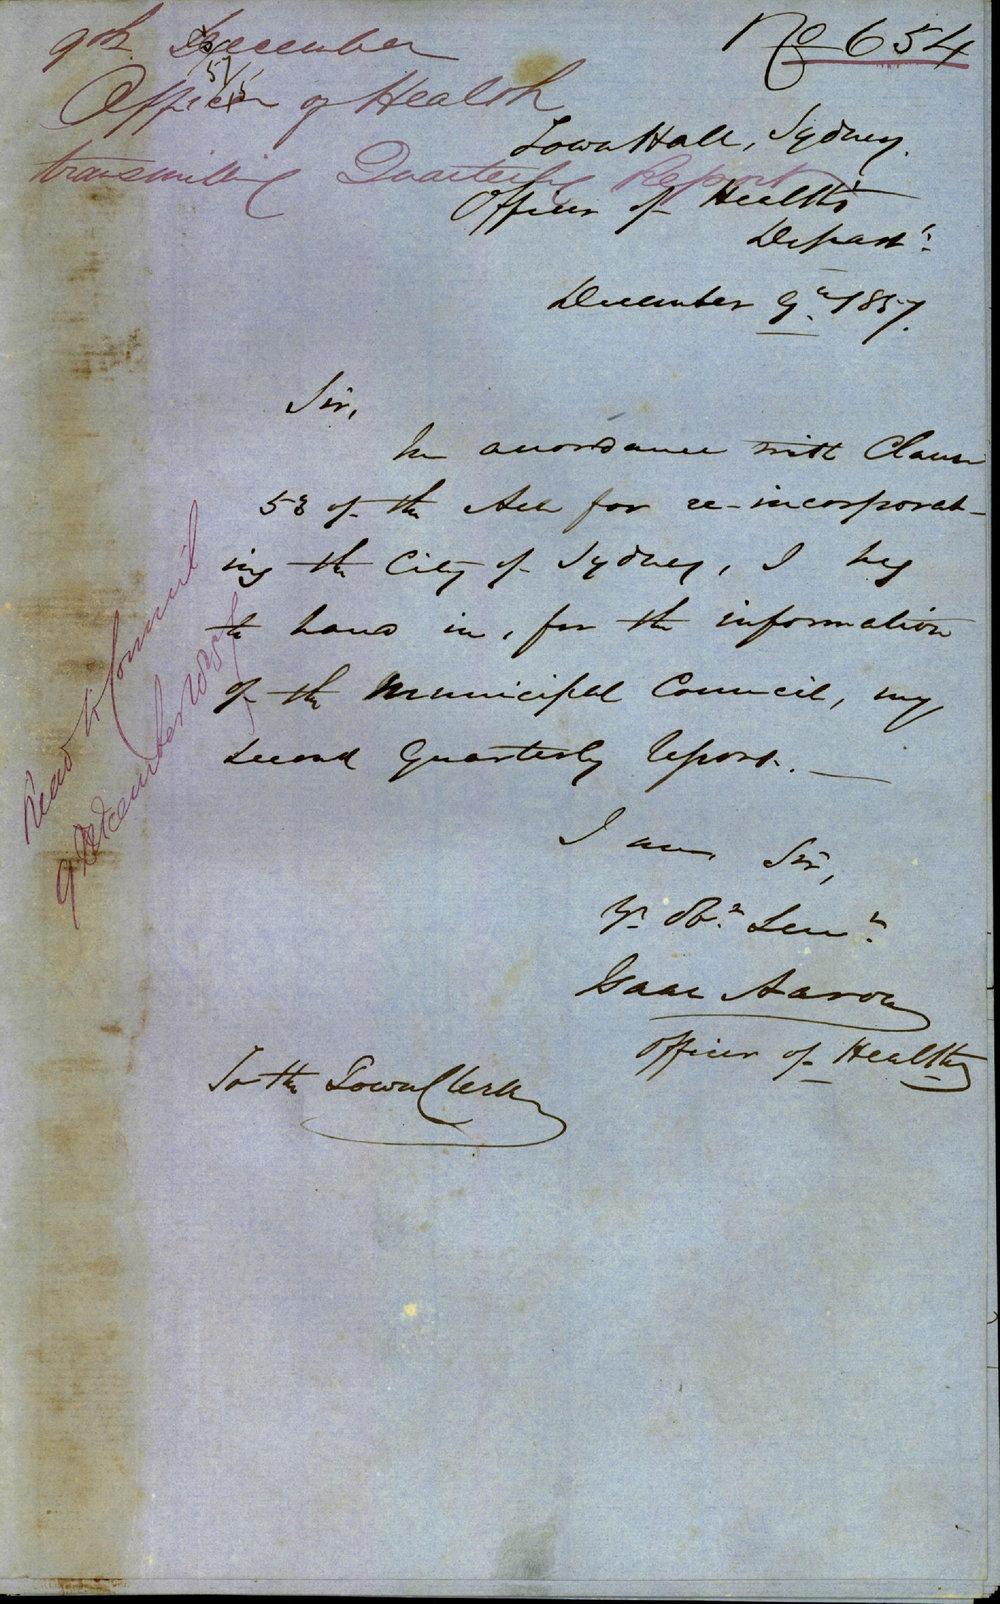 No 654
9th December
57/5
Officer of Health
transmitting Quarterly Report
Town Hall, Sydney.
Officer of Health's
Depart't.
December 9th 1857.
Sir,
In accordance with Clause
53 of the Act for re-incorporat-
ing the City of Sydney, I beg
to hand in, for the information
of the Municipal Council, my
second Quarterly Report.
Read to Council
9 December 1857
I am, Sir,
Yr. Obt. Servt.
Isaac Aaron
Officer of Health
To the Town Clerk